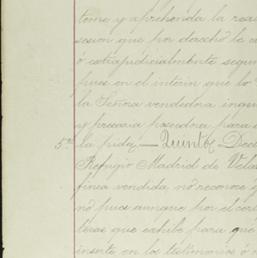 tome y aprehenda la real
sesion que por derecho le c
ó extrajudicialmente segun
pues en el interin que lo
la Señora vendedora inqui
y precaria poseedora para
5ª la pida,— Quinto, Decl
Refugio Madrid de Vela
finca vendida nó reconoce
nó pues aunque por el cer
teras que exhibe para que
inserte en los testimonios ó